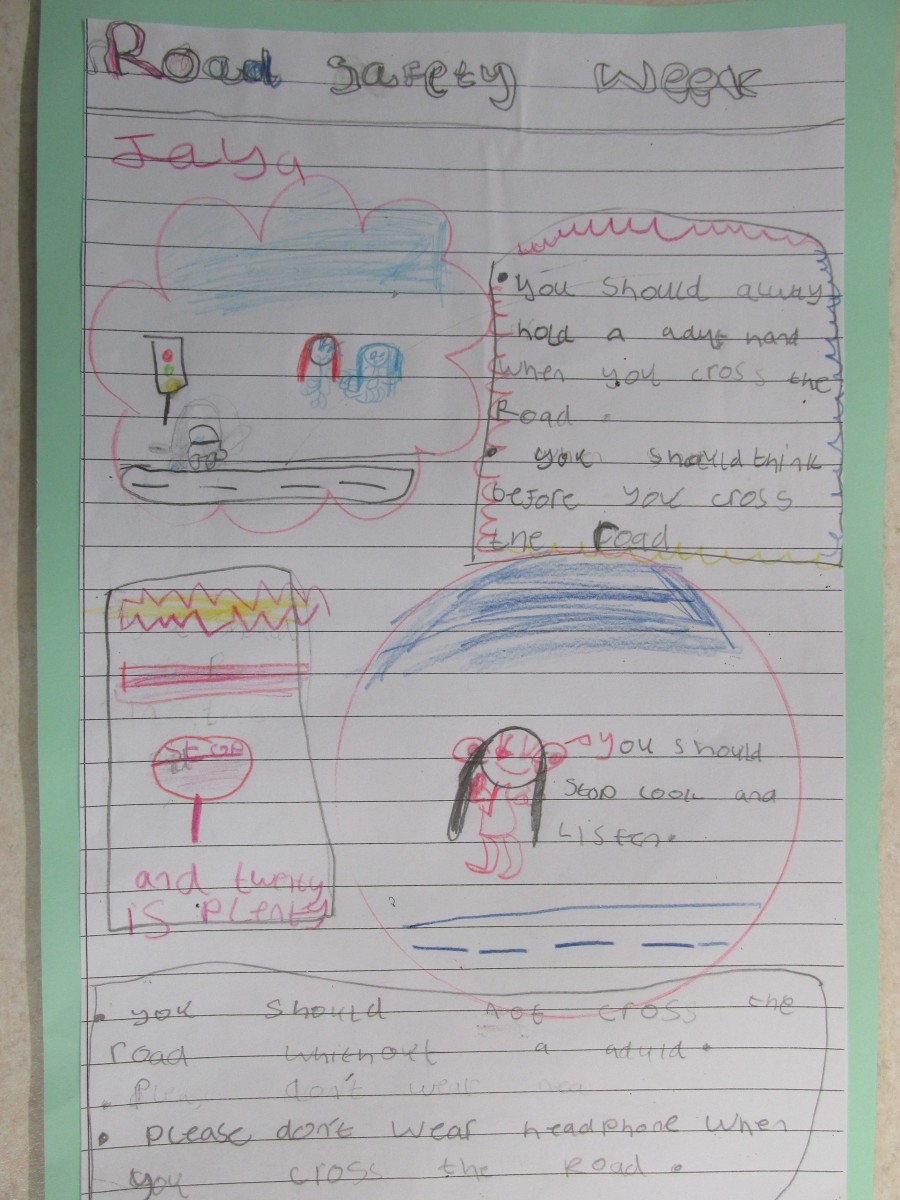 Road safety week
Jaya
• you should alway
hold a adult hand
when you cross the
Road.
• you should think
before you cross
the road
and twenty
is plenty
you should
Stop look and
Listen.
• you should not cross the
road whithout a aduld.
• don't wear
• please don't wear headphone when
you cross the Road.